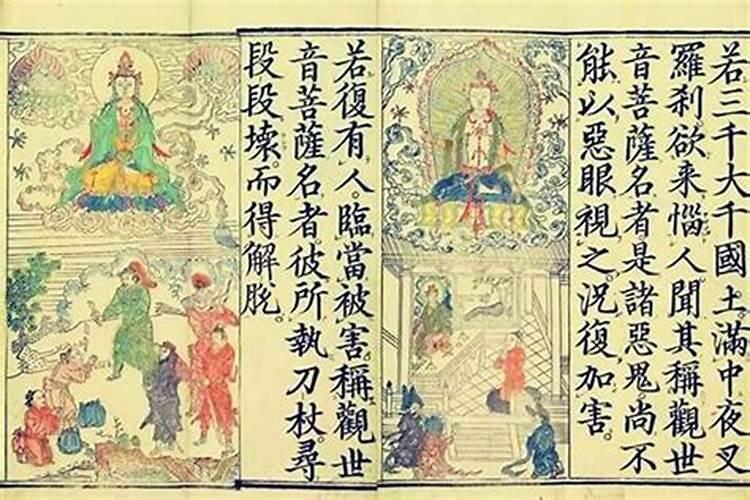 若三千大千國土。滿中夜叉
羅刹。欲来惱人。聞其稱觀世
音菩薩名者。是諸惡鬼。尚不
能以惡眼視之。况復加害。
若復有人。臨當被害。稱觀世
音菩薩名者。彼所執刀杖。尋
段段壞。而得解脫。